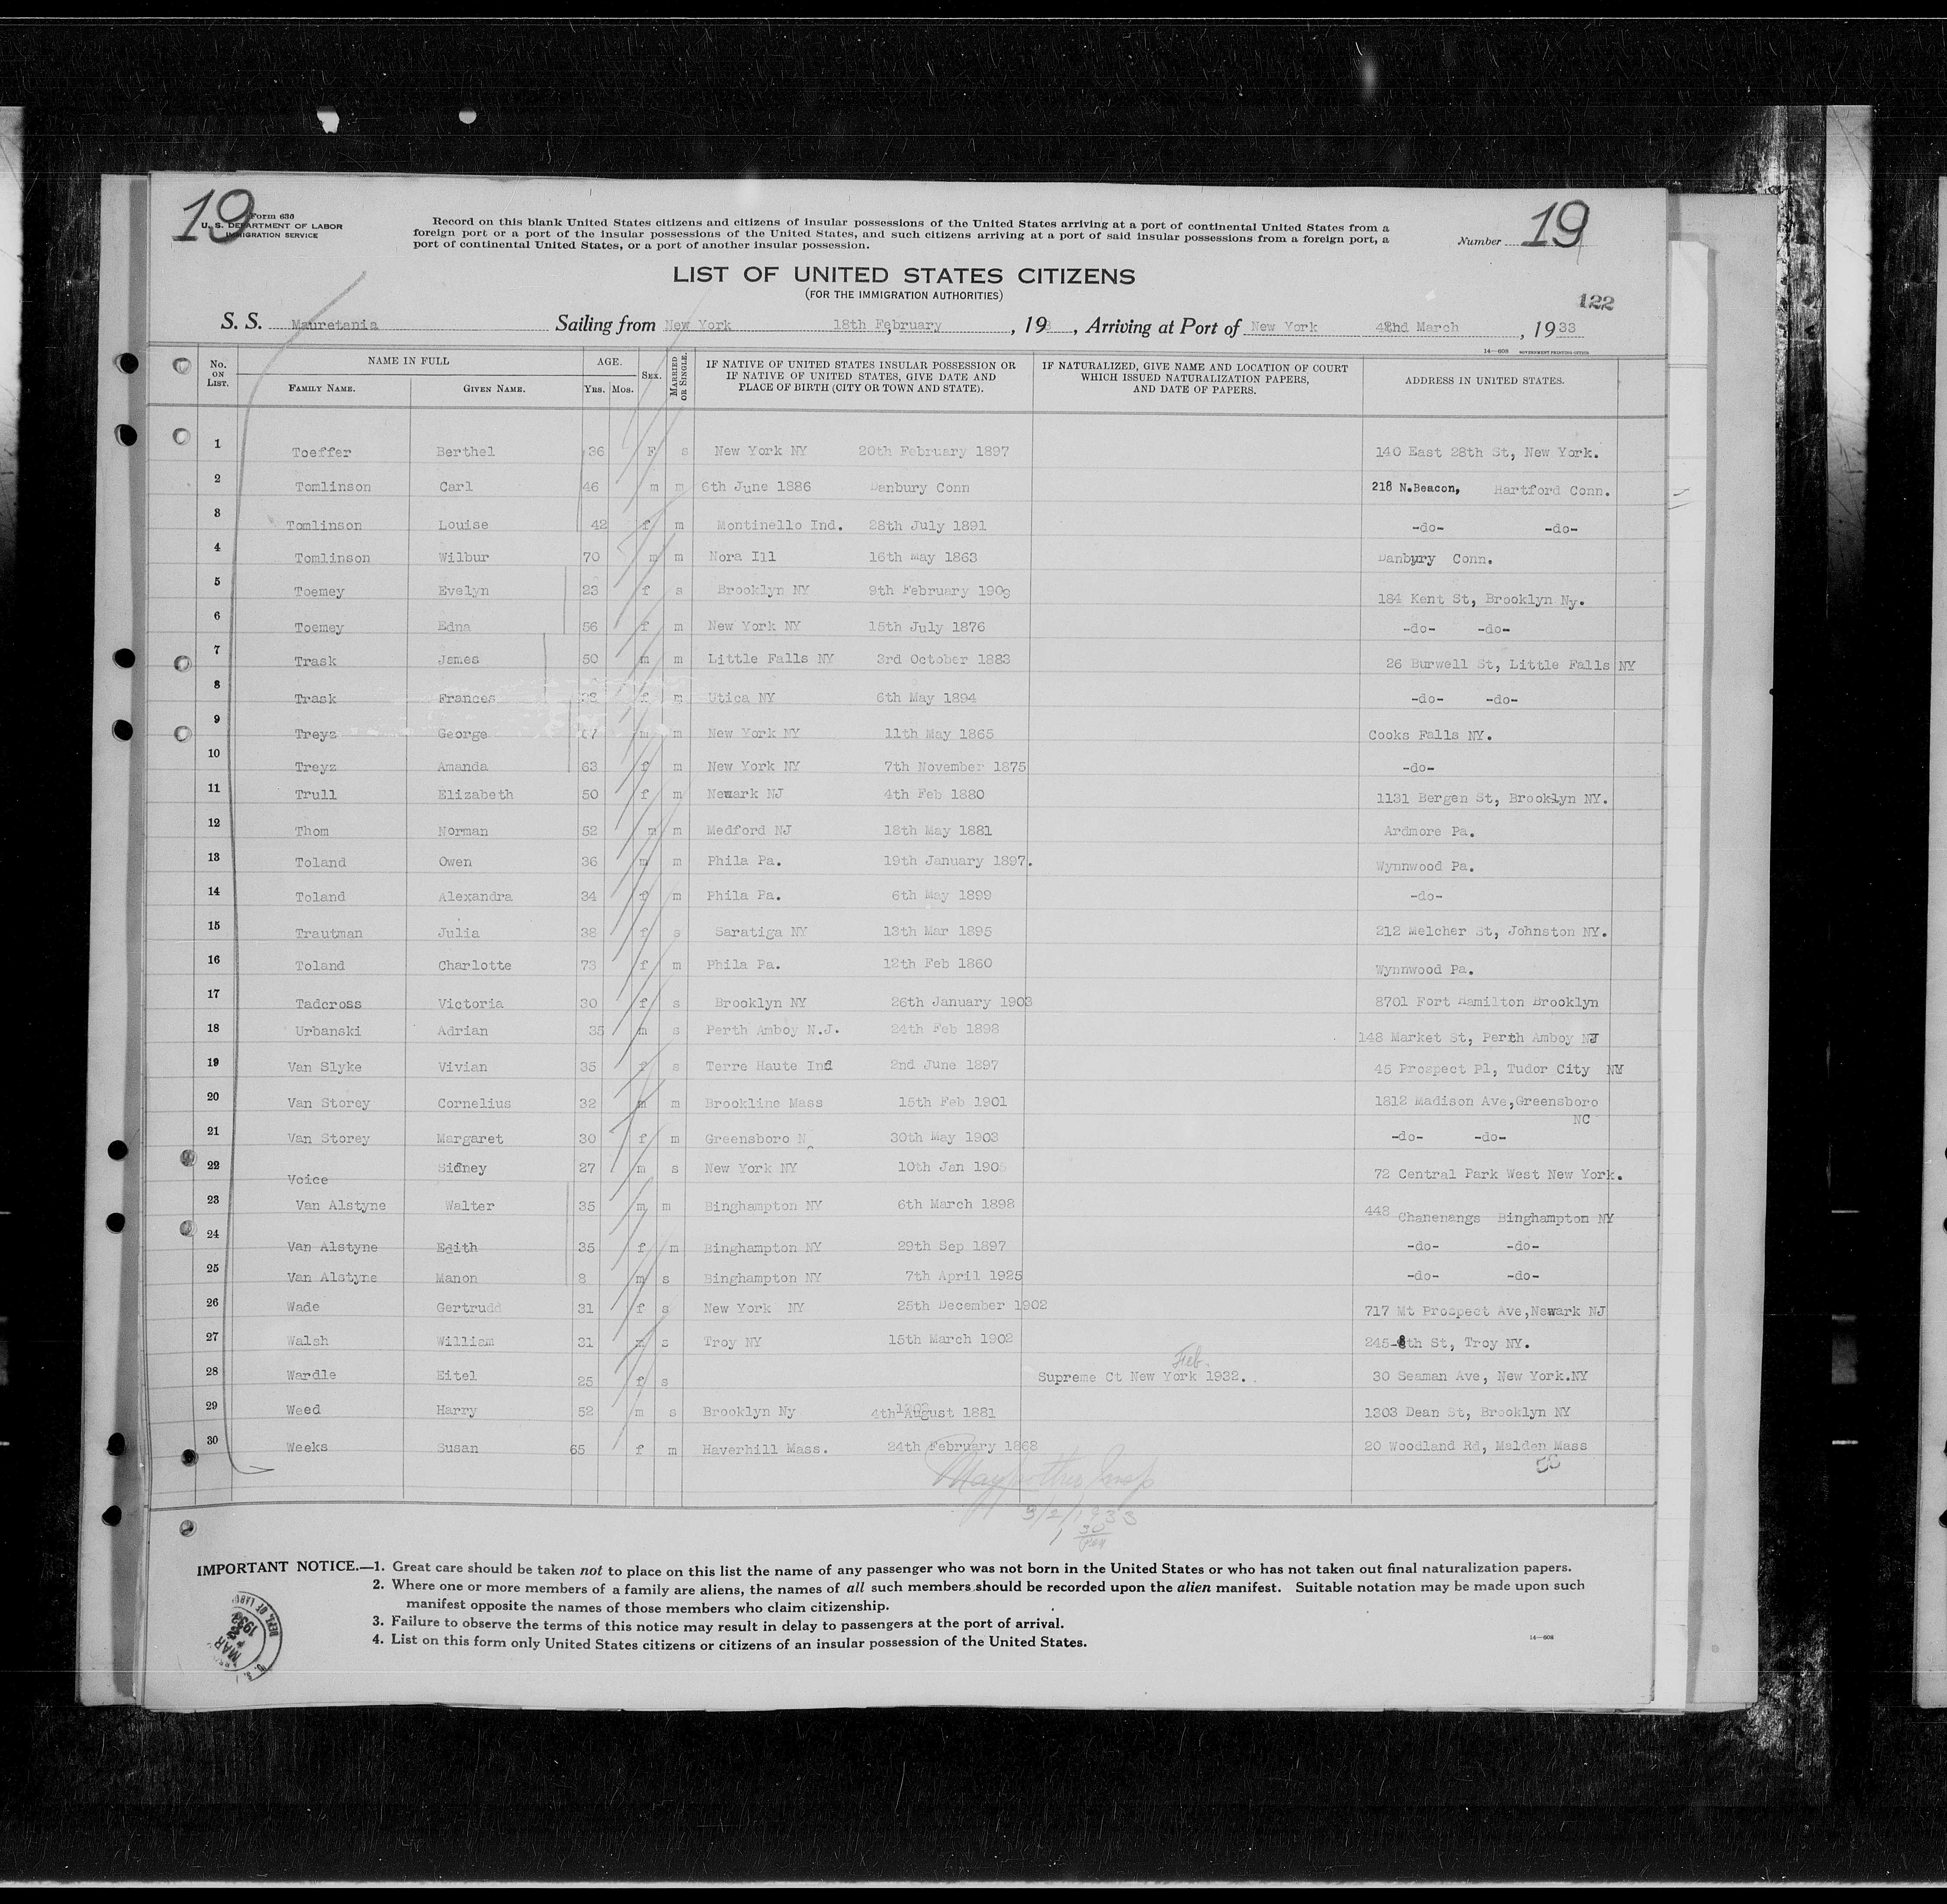 19
Form 630
U. S. DEPARTMENT OF LABOR
IMMIGRATION SERVICE
Record on this blank United States citizens and citizens of insular possessions of the United States arriving at a port of continental United States from a
foreign port or a port of the insular possessions of the United States, and such citizens arriving at a port of said insular possessions from a foreign port, a
port of continental United States, or a port of another insular possession.
Number 19
LIST OF UNITED STATES CITIZENS
(FOR THE IMMIGRATION AUTHORITIES)
122
S. S. Mauretania Sailing from New York 18th February, 19 , Arriving at Port of New York 2nd March , 1933
14—608 GOVERNMENT PRINTING OFFICE
No. ON LIST. NAME IN FULL FAMILY NAME. GIVEN NAME. AGE. YRS. MOS. SEX. MARRIED OR SINGLE. IF NATIVE OF UNITED STATES INSULAR POSSESSION OR IF NATIVE OF UNITED STATES, GIVE DATE AND PLACE OF BIRTH (CITY OR TOWN AND STATE). IF NATURALIZED, GIVE NAME AND LOCATION OF COURT WHICH ISSUED NATURALIZATION PAPERS, AND DATE OF PAPERS. ADDRESS IN UNITED STATES.
1 Toeffer Berthel 36 F s New York NY 20th February 1897 140 East 28th St, New York.
2 Tomlinson Carl 46 m m 6th June 1886 Danbury Conn 218 N.Beacon, Hartford Conn.
3 Tomlinson Louise 42 f m Montinello Ind. 28th July 1891 -do- -do-
4 Tomlinson Wilbur 70 m m Nora Ill 16th May 1863 Danbury Conn.
5 Toemey Evelyn 23 f s Brooklyn NY 9th February 1909 184 Kent St, Brooklyn Ny.
6 Toemey Edna 56 f m New York NY 15th July 1876 -do- -do-
7 Trask James 50 m m Little Falls NY 3rd October 1883 26 Burwell St, Little Falls NY
8 Trask Frances 38 f m Utica NY 6th May 1894 -do- -do-
9 Treyz George 67 m m New York NY 11th May 1865 Cooks Falls NY.
10 Treyz Amanda 63 f m New York NY 7th November 1875 -do-
11 Trull Elizabeth 50 f m Newark NJ 4th Feb 1880 1131 Bergen St, Brooklyn NY.
12 Thom Norman 52 m m Medford NJ 18th May 1881 Ardmore Pa.
13 Toland Owen 36 m m Phila Pa. 19th January 1897. Wynnwood Pa.
14 Toland Alexandra 34 f m Phila Pa. 6th May 1899 -do-
15 Trautman Julia 38 f s Saratiga NY 13th Mar 1895 212 Melcher St, Johnston NY.
16 Toland Charlotte 73 f m Phila Pa. 12th Feb 1860 Wynnwood Pa.
17 Tadcross Victoria 30 f s Brooklyn NY 26th January 1903 8701 Fort Hamilton Brooklyn
18 Urbanski Adrian 35 m s Perth Amboy N.J. 24th Feb 1898 148 Market St, Perth Amboy NJ
19 Van Slyke Vivian 35 f s Terre Haute Ind 2nd June 1897 45 Prospect Pl, Tudor City NY
20 Van Storey Cornelius 32 m m Brookline Mass 15th Feb 1901 1812 Madison Ave,Greensboro
NC
21 Van Storey Margaret 30 f m Greensboro N 30th May 1903 -do- -do-
22 Voice Sidney 27 m s New York NY 10th Jan 1905 72 Central Park West New York.
23 Van Alstyne Walter 35 m m Binghampton NY 6th March 1898 448 Chanenangs Binghampton NY
24 Van Alstyne Edith 35 f m Binghampton NY 29th Sep 1897 -do- -do-
25 Van Alstyne Manon 8 m s Binghampton NY 7th April 1925 -do- -do-
26 Wade Gertrudd 31 f s New York NY 25th December 1902 717 Mt Prospect Ave,Newark NJ
27 Walsh William 31 m s Troy NY 15th March 1902 245-8th St, Troy NY.
Feb.
28 Wardle Eitel 25 f s Supreme Ct New York 1932. 30 Seaman Ave, New York.NY
29 Weed Harry 52 m s Brooklyn Ny 4th August 1881 1303 Dean St, Brooklyn NY
30 Weeks Susan 65 f m Haverhill Mass. 24th February 1868 20 Woodland Rd, Malden Mass
3/2/1933
30
IMPORTANT NOTICE.—1. Great care should be taken not to place on this list the name of any passenger who was not born in the United States or who has not taken out final naturalization papers.
2. Where one or more members of a family are aliens, the names of all such members should be recorded upon the alien manifest. Suitable notation may be made upon such
manifest opposite the names of those members who claim citizenship.
3. Failure to observe the terms of this notice may result in delay to passengers at the port of arrival.
4. List on this form only United States citizens or citizens of an insular possession of the United States.
14—608
DEPT. OF LABOR
MAR 2 1933